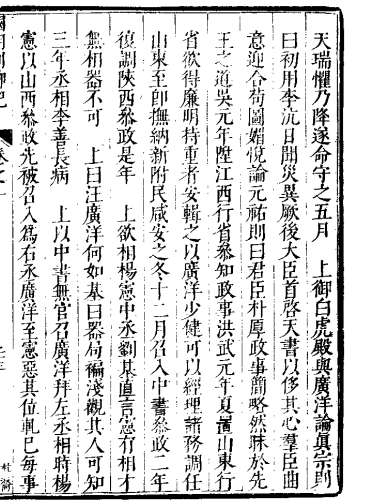 天瑞懼乃降遂命守之五月　上御白虎殿與廣洋論真宗則
曰初用李沆日聞災異厥後大臣首啓天書以侈其心羣臣曲
意迎合苟圖媚悅論元祐則曰君臣朴原政事簡略然昧於先
王之道吳元年陞江西行省叅知政事洪武元年夏置山東行
省欲得廉明持重者安輯之以廣洋少健可以經理諸務調任
山東至即撫納新附民咸安之冬十二月召入中書叅政二年
復調陝西叅政是年　上欲相楊憲中丞劉基直言憲有相才
無相器不可　上曰汪廣洋何如基曰器局褊淺觀其人可知
三年丞相李善長病　上以中書無官召廣洋拜左丞相時楊
憲以山西叅政先被召入爲右丞廣洋至憲惡其位軋已每事
卷之一